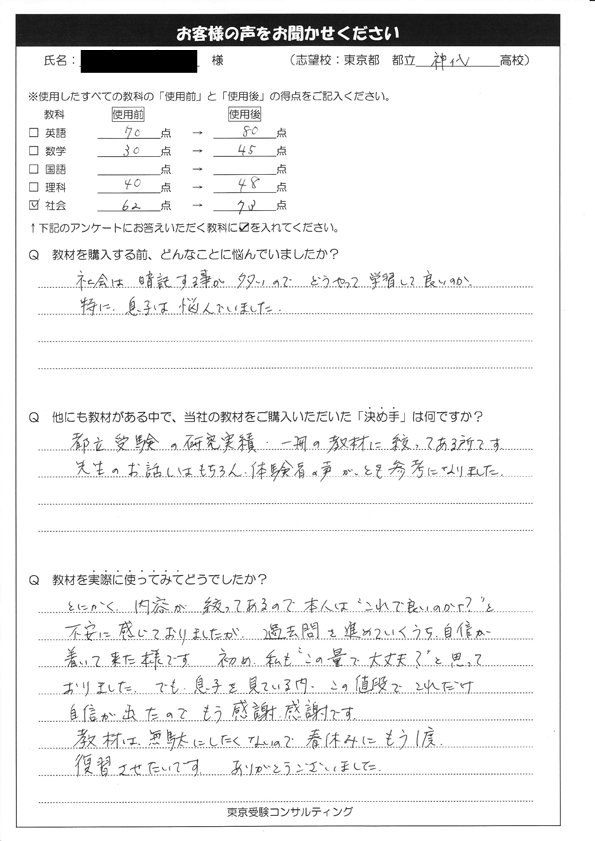 お客様の声をお聞かせください
氏名： 様 （志望校：東京都 都立 神代 高校）
※使用したすべての教科の「使用前」と「使用後」の得点をご記入ください。
教科 使用前 使用後
□ 英語 70 点 → 80 点
□ 数学 30 点 → 45 点
□ 国語 点 → 点
□ 理科 40 点 → 48 点
☑ 社会 62 点 → 78 点
↑下記のアンケートにお答えいただく教科に☑を入れてください。
Q 教材を購入する前、どんなことに悩んでいましたか？
社会は 暗記する事が 多いので どうやって 学習して良いのか、
特に、息子は 悩んでいました。
Q 他にも教材がある中で、当社の教材をご購入いただいた「決め手」は何ですか？
都立 受験 の 研究実績・一冊の教材に 絞ってある所です。
先生の お話しはもちろん、体験者の声が、とても 参考になりました。
Q 教材を実際に使ってみてどうでしたか？
とにかく、内容が 絞ってあるので 本人は "これで良いのか？" と
不安に 感じておりましたが、過去問を進めていくうち、自信が
着いて 来た様です。 初め、私も "この量で大丈夫？" と 思って
おりました。 でも、息子を 見ている内、この値段で これだけ
自信が 出たので もう 感謝、感謝です。
教材は、無駄にしたくないので 春休みに もう1度、
復習 させたいです。 ありがとうございました。
東京受験コンサルティング